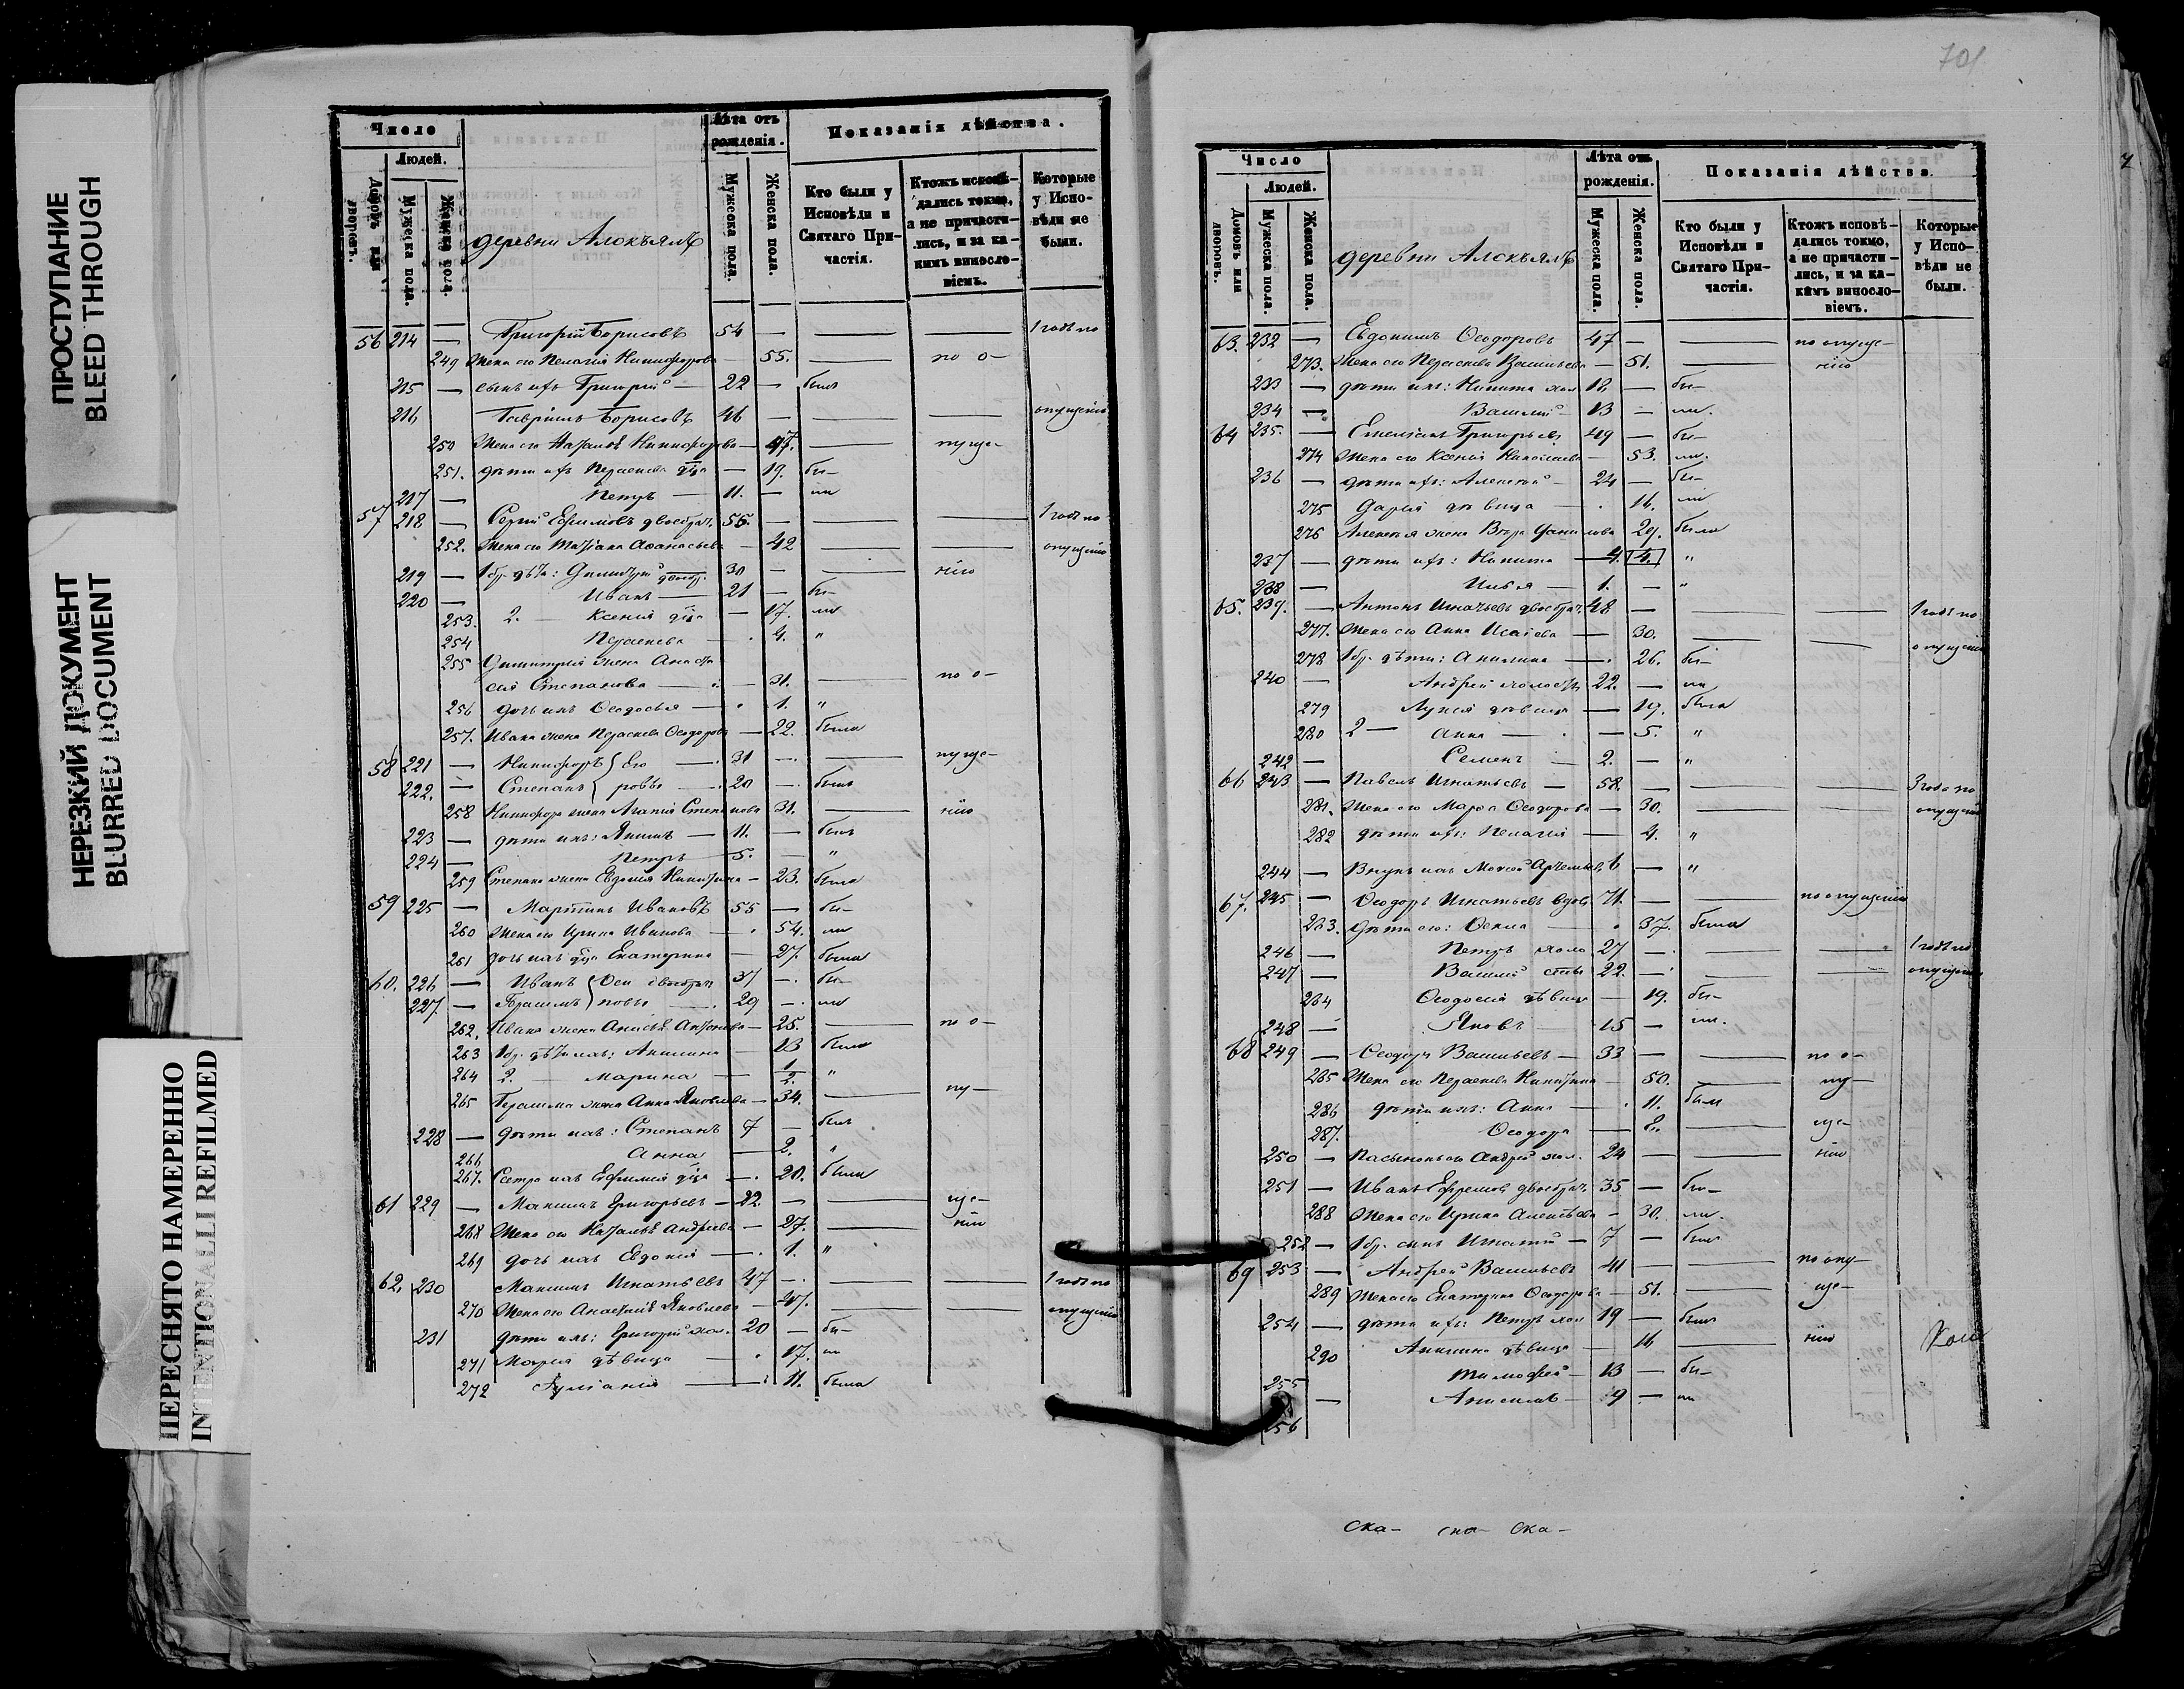 ПРОСТУПАНИЕ
BLEED THROUGH
НЕРЕЗКИЙ ДОКУМЕНТ
BLURRED DOCUMENT
ПЕРЕСНЯТО НАМЕРЕННО
INTENTIONALLI REFILMED
Число
Людей.
Домовъ или дворовъ.
Мужеска пола.
Женска пола.
деревни
Лѣта отъ рожденія.
Мужеска пола.
Женска пола.
Показанія дѣйства.
Кто были у Исповѣди и Святаго Причастія.
Ктожъ исповѣдались токмо, а не причастились, и за какимъ винословіемъ.
Которые у Исповѣди не были.
56 214 — Григорій Борисовъ 54 — — — 1 годъ по
249 Жена его Пелагія Никифорова — 55. — по о-
215 — сынъ ихъ Григорій — 22 — былъ
216 Гавріилъ Борисовъ 46 — — — опущенію
250 Жена его Наталія Никифорова — 47. — пуще-
251. дѣти ихъ Параскева дѣца — 19. бы-
217 — Петръ — 11. — ли
57 218 — Сергій Ефимовъ двоебрач. 56. — — — 1 годъ по
252. Жена его Татіана Аѳанасьева — 42 — — опущенію
219 — 1 бр. дѣти: Димитрій двоебр. 30 — — нію
220 — Иванъ — 21 — бы-
253. 2. — Ксенія дѣца — 17. ли
254 Параскева — 4. "
255 Димитрія жена Анаста
сія Степанова — 31. — по о-
256 дочь ихъ Ѳеодосья — 1. "
257. Ивана жена Параскева Ѳеодорова — 22. была
58 221 — Никифоръ 31 — — пуще-
222. — Степанъ 20 — былъ
258 Никифора жена Агапія Степанова 31. — нію
223 — дѣти ихъ: Якимъ — 11. — былъ
224 — Петръ — 5. — "
259 Степана жена Евдокія Никитина — 23. была
59 225 — Мартинъ Ивановъ 55 — бы-
260 Жена его Ирина Иванова — 54. ли
261 дочь ихъ дѣца Екатерина — 27. была
60. 226 — Иванъ Оси двоебрач 37 — бы-
227. — Герасимъ повы 29 — ли
262. Ивана жена Анисія Антонова — 25. — по о-
263 1 бр. дѣти ихъ: Акилина — 13 была
264 2. — Марина — 1/2. "
265 Герасима жена Анна Яковлева — 34. — пу-
228 — дѣти ихъ: Степанъ 7 — былъ
266 Анна — 2. "
267. Сестра ихъ Евфимія дѣца — 20. была
61 229 — Максимъ Григорьевъ — 22. — — ще-
268 Жена его Наталья Андреева — 27. — нію
269 дочь ихъ Евдокія — 1. "
62. 230 Максимъ Игнатьевъ 47 — — — 1 годъ по
270 Жена его Анастасія Яковлева — 47. — — опущенію
231 дѣти ихъ: Григорій хол. 20 — бы-
271 Марія дѣвица — 17. ли
272 Іуліанія — 11. была
701
Число
Людей.
Домовъ или дворовъ.
Мужеска пола.
Женска пола.
деревни
Лѣта отъ рожденія.
Мужеска пола.
Женска пола.
Показанія дѣйства.
Кто были у Исповѣди и Святаго Причастія.
Ктожъ исповѣдались токмо, а не причастились, и за какимъ винословіемъ.
Которые у Исповѣди не были.
63. 232 — Евдокимъ Ѳеодоровъ 47 — — по опуще-
273. Жена его Параскева Васильева — 51. — нію
233 — дѣти ихъ: Никита хол 18. — бы-
234 — Василій — 13 — ли.
64 235. — Емеліанъ Григорьевъ 49 — бы-
274 Жена его Ксенія Николаева — 53. ли.
236 — дѣти ихъ: Алексѣй — 24 — бы-
275 Дарія дѣвица — 16. ли
276 Алексѣя жена Вѣра Данилова 29. была
237 — дѣти ихъ: Никита — 4. 4. "
238 — Илья — 1. — "
65. 239. — Антонъ Игнатьевъ двоебрач. 48 — — — 1 годъ по
277. Жена его Анна Исаіева — 30. — — опущенію
278 1 бр. дѣти: Акилина — 26. бы-
240 — Андрей холостъ 22. — ли
279 Лукія дѣвица — 19. была
280 2 — Анна — 5. "
242 — Семенъ — 2. — "
66 243 — Павелъ Игнатьевъ — 58. — — — 3 года по
281. Жена его Марѳа Ѳеодорова — 30. — — опущенію
282 дѣти ихъ: Пелагія — 4. "
244 — Внукъ ихъ Моисей Артемьевъ 6 — "
67. 245 — Ѳеодоръ Игнатьевъ вдовъ 71. — — по опущенію
283. Дѣти его: Ѳекла — 37. была
246 — Петръ холо 27 — — — 1 годъ по
247 — Василій сты 22. — — — опущенію
284 Ѳеодосія дѣвица — 19. бы-
248 — Яковъ — 15 — ли.
68 249 — Ѳеодоръ Васильевъ — 33 — — по о-
285 Жена его Параскева Никитина — 50. — пу-
286 дѣти ихъ: Анна — 11. был
287. Ѳеодора — 8. — ще-
250 — Пасынокъ его Андрей хол. 24 — — нію
251 — Иванъ Ефремовъ двоебрач. 35 — бы-
288 Жена его Ирина Алексѣева — 30. ли.
252 — 1 бр. сынъ Игнатій — 7 — былъ
69 253 — Андрей Васильевъ 41 — — по опу-
289 Жена его Екатерина Ѳеодорова — 51. — ще-
254 — дѣти ихъ: Петръ хол 19 — былъ
290 Акилина дѣвица — 16 — нію
255 Тимоѳей — 13 — бы-
256 — Анисимъ — 9 — ли
ска- ска- ска-